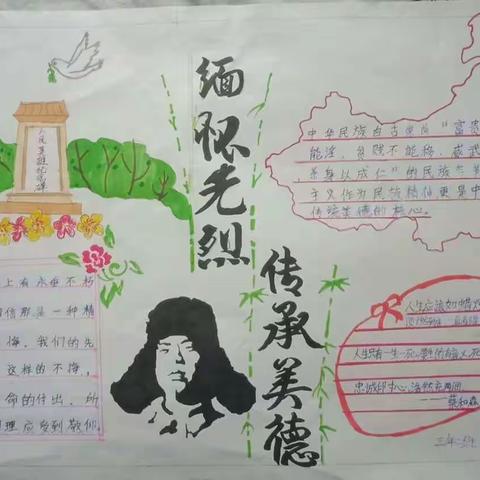 缅怀先烈
传承美德
人民英雄纪念碑
中华民族自古崇尚“富贵
能淫，贫贱不能移，威武
杀身以成仁”的民族
主义作为民族精神更是中
传统美德的核心。
上有永垂不朽
信那是一种精
悔，我们的先
这样的不悔，
命的付出，所
理应受到敬仰
人生应该如蜡烛
人生只有一生一死，要生的有意义，死
忠诚印中心，浩然充两间
——蔡和森
三年